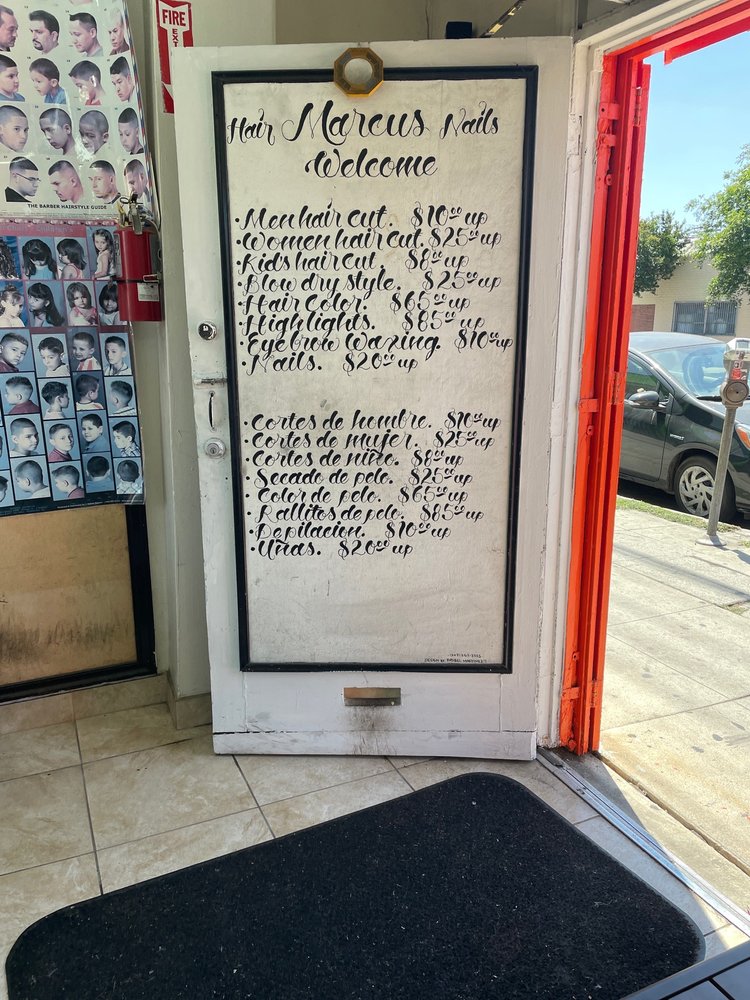 FIRE
THE BARBER HAIRSTYLE GUIDE
Hair Marcus Nails
Welcome
• Men hair cut. $10.00 up
• Women hair cut. $25.00 up
• Kids hair Cut $8.00 up
• Blow dry style. $25.00 up
• Hair Color. $65.00 up
• Highlights. $85.00 up
• Eyebrow Waxing. $10.00 up
• Nails. $20.00 up
• Cortes de hombre. $10.00 up
• Cortes de mujer. $25.00 up
• Cortes de niño. $8.00 up
• Secado de pelo. $25.00 up
• Color de pelo. $65.00 up
• Rallitos de pelo. $85.00 up
• Depilacion. $10.00 up
• Uñas. $20.00 up